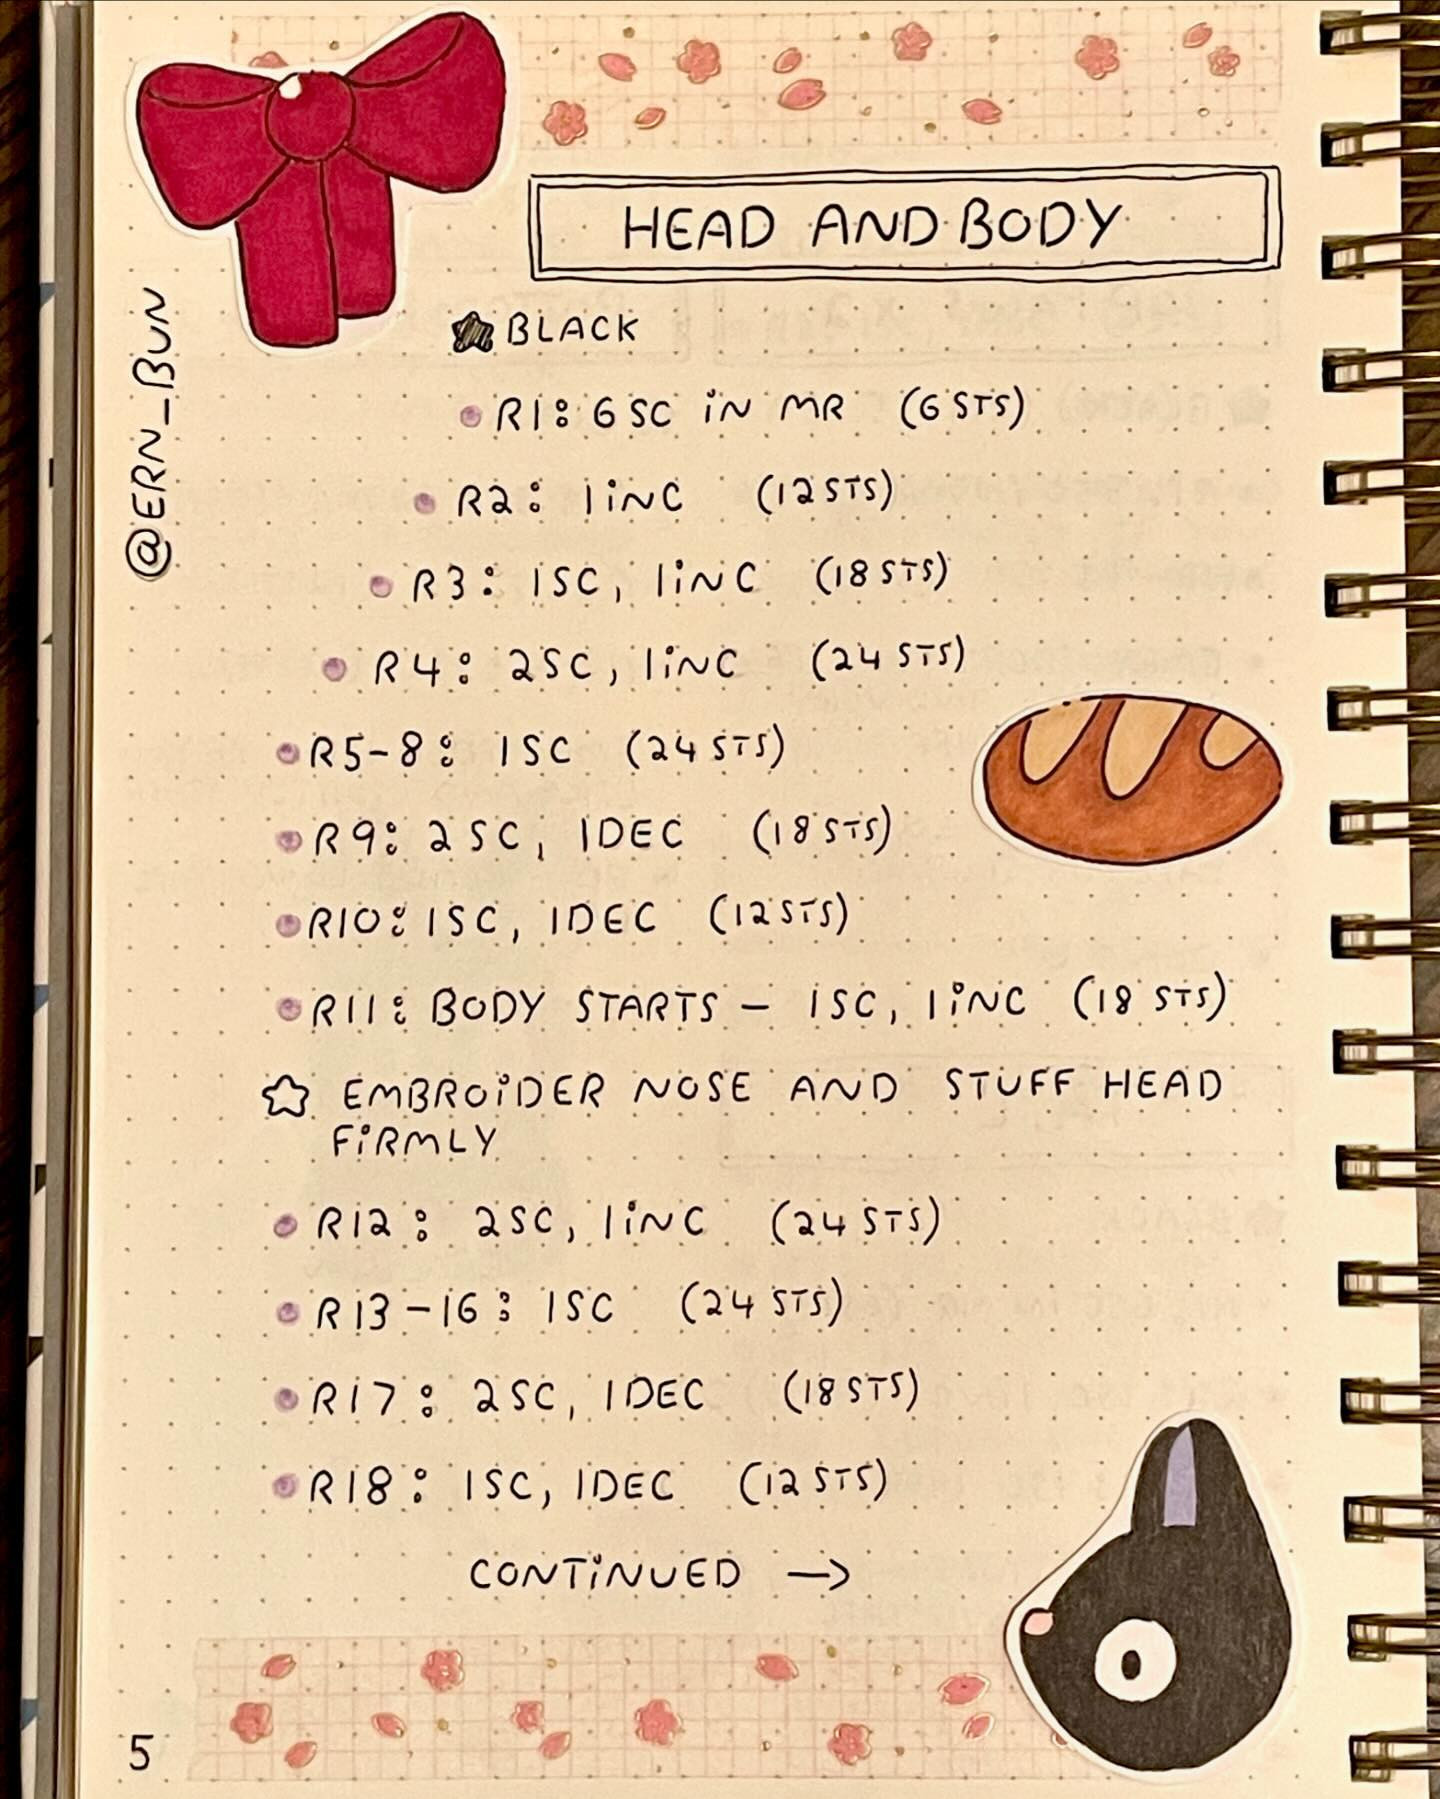 HEAD AND BODY
BLACK
@ERN_BUN
R1: 6 SC iN MR (6 STS)
R2: 1iNC (12 STS)
R3: 1SC, 1iNC (18 STS)
R4: 2SC, 1iNC (24 STS)
R5-8: 1SC (24 STS)
R9: 2SC, 1DEC (18 STS)
R10: 1SC, 1DEC (12 STS)
R11: BODY STARTS - 1SC, 1iNC (18 STS)
EMBROiDER NOSE AND STUFF HEAD
FiRMLY
R12: 2SC, 1iNC (24 STS)
R13-16: 1SC (24 STS)
R17: 2SC, 1DEC (18 STS)
R18: 1SC, 1DEC (12 STS)
CONTiNUED →
5